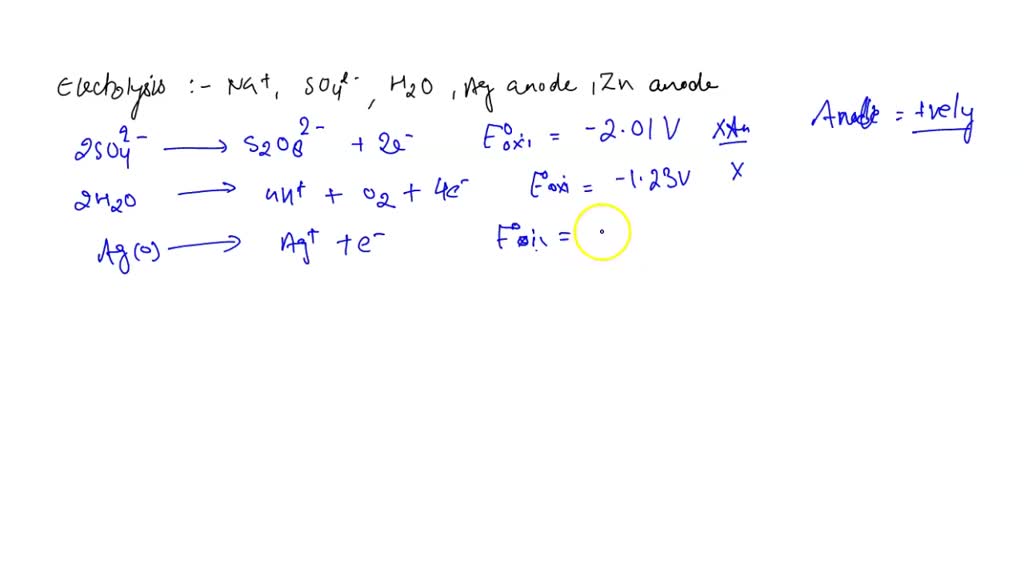 Electolysis :- Na⁺, SO₄²⁻, H₂O, Ag anode, Zn anode
Anode = +vely
2SO₄²⁻ ⟶ S₂O₈²⁻ + 2e⁻ E°oxi = -2.01V XX
2H₂O ⟶ 4H⁺ + O₂ + 4e⁻ E°oxi = -1.23V X
Ag(0) ⟶ Ag⁺ + e⁻ E°oxi =